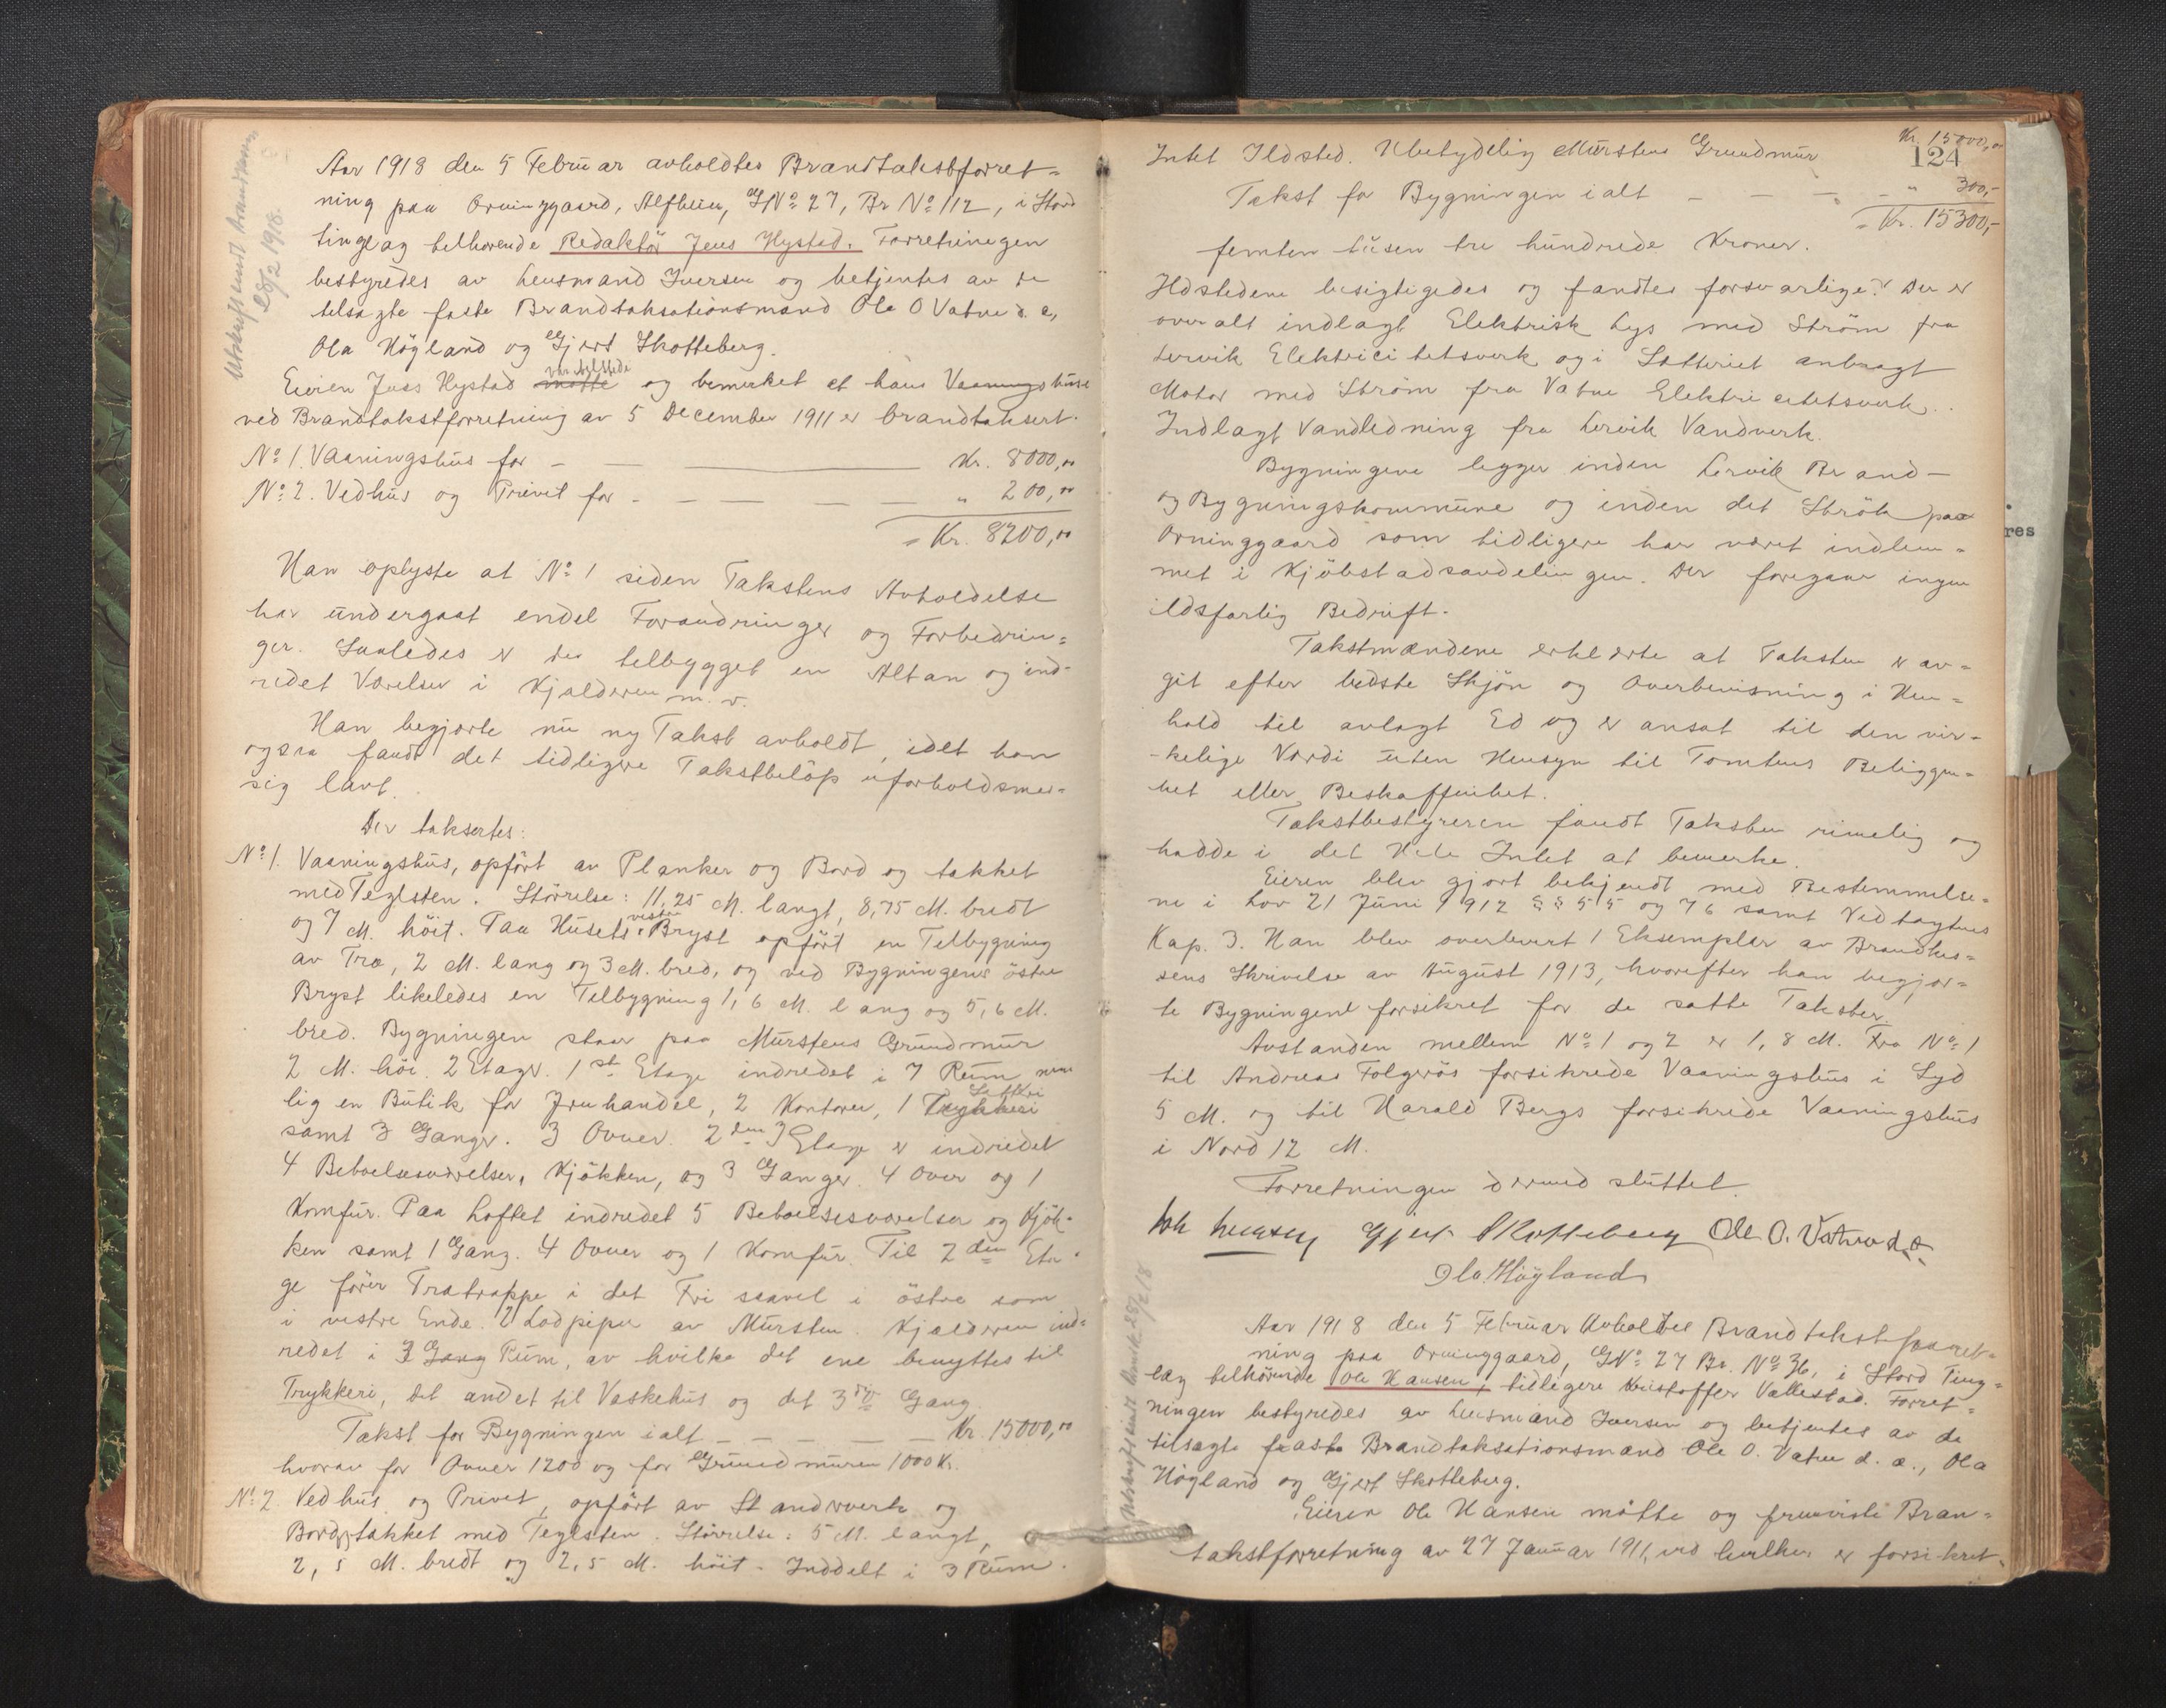 Utskrift sendt brandkassen
28/2 1918.
Aar 1918 den 5 Februar avholdtes Brandtakstforret=
ning paa Orninggaard, Alfheim, GNo 27, Br No 112, i Stord
tinglag tilhørende Redaktör Jens Hystad. Forretningen
bestyredes av Lensmand Iversen og betjentes av de
tilsagte faste Brandtaksationsmænd Ole O Vatne d. e,
Ola Högland og Gjert Skotteberg.
Eieren Jens Hystad var tilstede og bemerket at hans Vaaningshuse
ved Brandtakstforretning av 5 December 1911 er brandtaksert.
No 1. Vaaningshus for — — — Kr. 8000,00
No 2. Vedhus og Privet for - — — — " 200,00
= Kr. 8200,00
Han oplyste at No 1 siden Takstens Avholdelse
har undergaat endel Forandringer og Forbedrin=
ger. Saaledes er der tilbygget en Altan og ind-
redet Værelser i Kjælderen m. v.
Han begjærte nu ny Takst avholdt, idet han
ogsaa fandt det tidligere Takstbelöp uforholdsmæs=
sig lavt.
Der taksertes:
No 1. Vaaningshus, opfört av Planker og Bord og takket
med Teglsten. Störrelse: 11,25 M. langt, 8,75 M. bredt
og 7 M. höit. Paa Husets vestre Bryst opfört en Tilbygning
av Træ, 2 M. lang og 3 M. bred, og ved Bygningens östre
Bryst likeledes en Tilbygning 1,6 M. lang og 5,6 M.
bred. Bygningen staar paa Murstens Grundmur
2 M. höi. 2 Etager. 1st Etage indredet i 7 Rum nem
lig en Butik for Isenhandel, 2 Kontorer, 1 Trykkeri Sætteri
samt 3 Ganger. 3 Ovner. 2den Etage er indredet
4 Beboelsesværelser, Kjökken, og 3 Ganger. 4 Ovner og 1
Komfur. Paa Loftet indredet 5 Beboelsesværelser og Kjök-
ken samt 1 Gang. 4 Ovner og 1 Komfur. Til 2den Eta-
ge förer Trætrappe i det Fri saavel i östre som
i vestre Ende. 2 Lodpiper av Mursten. Kjælderen ind=
redet i 3 Gang Rum, av hvilke det ene benyttes til
Trykkeri, det andet til Vaskehus og det 3die Gang.
Takst for Bygningen ialt — — — — Kr. 15000,00
hvorav for Ovner 1200 og for Grundmuren 1000 Kr.
No 2. Vedhus og Privet, opfört av Standerverk og
Bord, takket med Teglsten. Störrelse: 5 M. langt,
2,5 M. bredt og 2,5 M. höit. Inddelt i 3 Rum.
Kr. 15000,00
124
Intet Ildsted. Ubetydelig Murstens Grundmur
Takst for Bygningen ialt — — - " 300,-
= Kr. 15300,-
femten tusen tre hundrede Kroner.
Ildstedene besigtigedes og fandtes forsvarlige. Der er
overalt indlagt Elektrisk Lys med Ström fra
Lervik Elektricitetsverk og i Sætteriet anbragt
Motor med Ström fra Vatne Elektricitetsverk.
Indlagt Vandledning fra Lervik Vandverk.
Bygningene ligger inden Lervik Brand-
og Bygningskommune og inden det Strök paa
Orninggaard som tidligere har været indlem=
met i Kjöbstadsavdelingen. Der foregaar ingen
ildsfarlig Bedrift.
Takstmændene erklærte at Taksten er av=
git efter bedste Skjön og Overbevisning i Hen=
hold til avlagt Ed og er ansat til den vir-
-kelige Værdi uten Hensyn til Tomtens Beliggen=
het eller Beskaffenhet.
Takstbestyreren fandt Taksten rimelig og
hadde i det Hele Intet at bemerke.
Eieren blev gjort bekjendt med Bestemmelse=
ne i Lov 21 Juni 1912 §§ 55 og 76 samt Vedtægtens
Kap. 3. Han blev overlevert 1 Eksemplar av Brandkas=
sens Skrivelse av August 1913, hvorefter han begjær=
te Bygningene forsikret for de satte Takster.
Avstanden mellem No 1 og 2 er 1,8 M. Fra No 1
til Andreas Folgerös forsikrede Vaaningshus i Syd
5 M. og til Harald Bergs forsikrede Vaaningshus
i Nord 12 M.
Forretningen dermed sluttet.
Iversen Gjert Skotteberg Ole O. Vatne d. e.
Ola Högland
Utskrift sendt 28/2 18
Aar 1918 den 5 Februar Avholdtes Brandtakstforret=
ning paa Orninggaard, GNo 27 Br. No 36, i Stord Ting=
lag tilhörende Ole Hansen, tidligere Kristoffer Vallestad. Forret=
ningen bestyredes av Lensmand Iversen og betjentes av de
tilsagte faste Brandtaksationsmænd Ole O. Vatne d. e., Ola
Högland og Gjert Skotteberg.
Eieren Ole Hansen mötte og fremviste Bran=
takstforretning av 27 Januar 1911, ved hvilken er forsikret
res